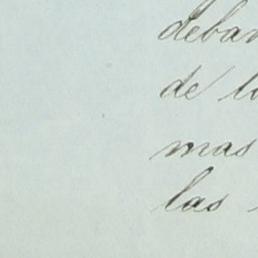 deban
de lo
mas
las